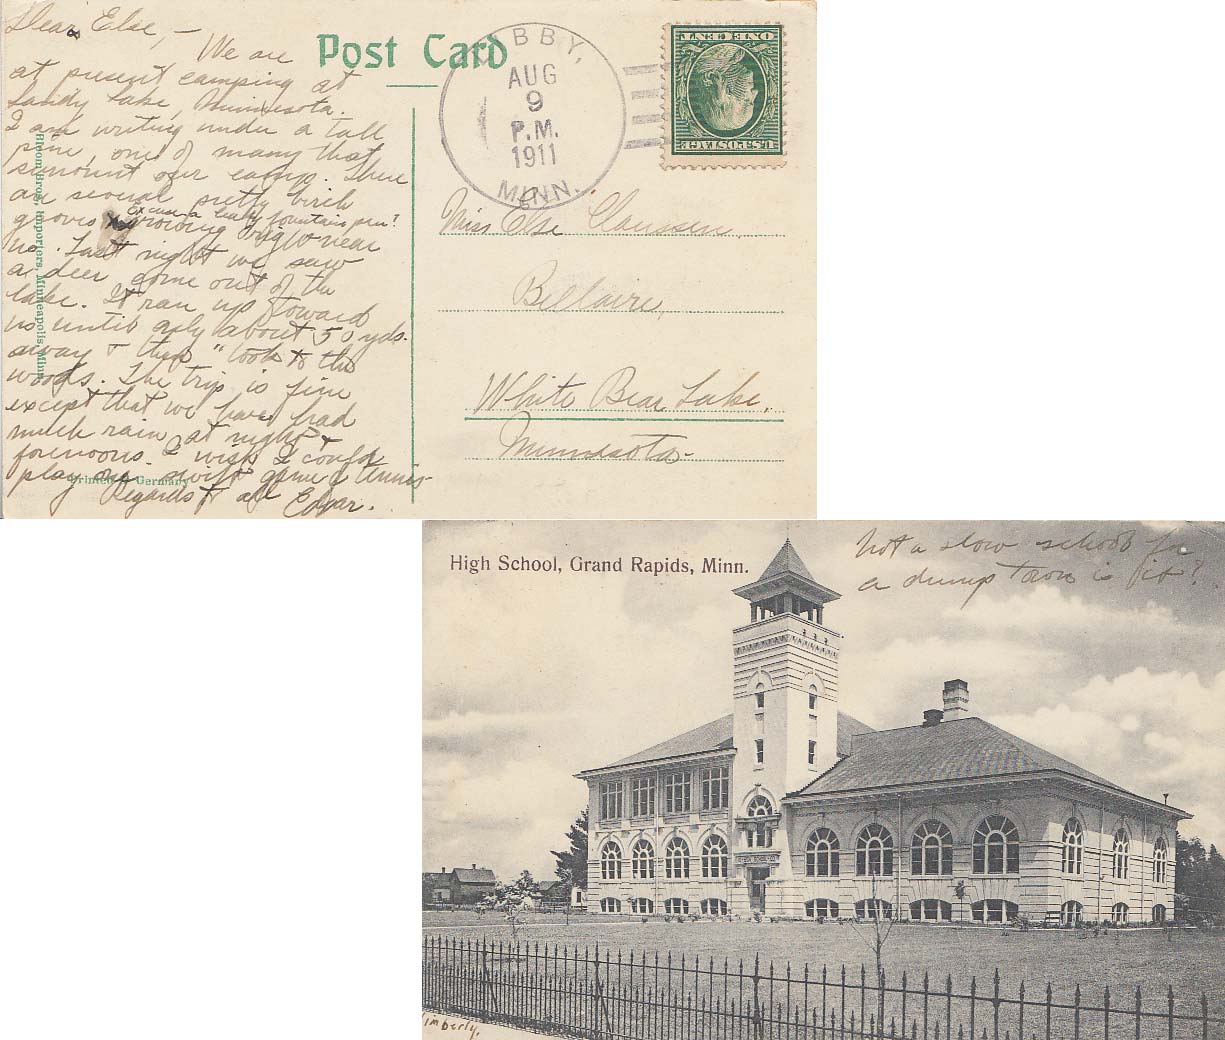 Dear Else, —
We are
at present camping at
Sandy Lake, Minnesota.
I am writing under a tall
pine, one of many that
surround our camp. There
are several pretty birch
groves growing right near
Excuse a leaky fountain pen?
us. Last night we saw
a deer come out of the
lake. It ran up toward
us until only about 50 yds.
away & then "took to the
woods. The trip is fine
except that we have had
much rain at night &
forenoons. I wish I could
play a swift game of tennis.
Regards to all Edgar.
Bloom Bros., Importers, Minneapolis, Minn.
Printed in Germany
Post Card
LIBBY,
AUG
9
P.M.
1911
MINN.
U.S. POSTAGE
ONE CENT
Miss Else Claussen,
Bellaire,
White Bear Lake,
Minnesota.
High School, Grand Rapids, Minn.
Not a slow school for
a dump town is it?
Kimberly.